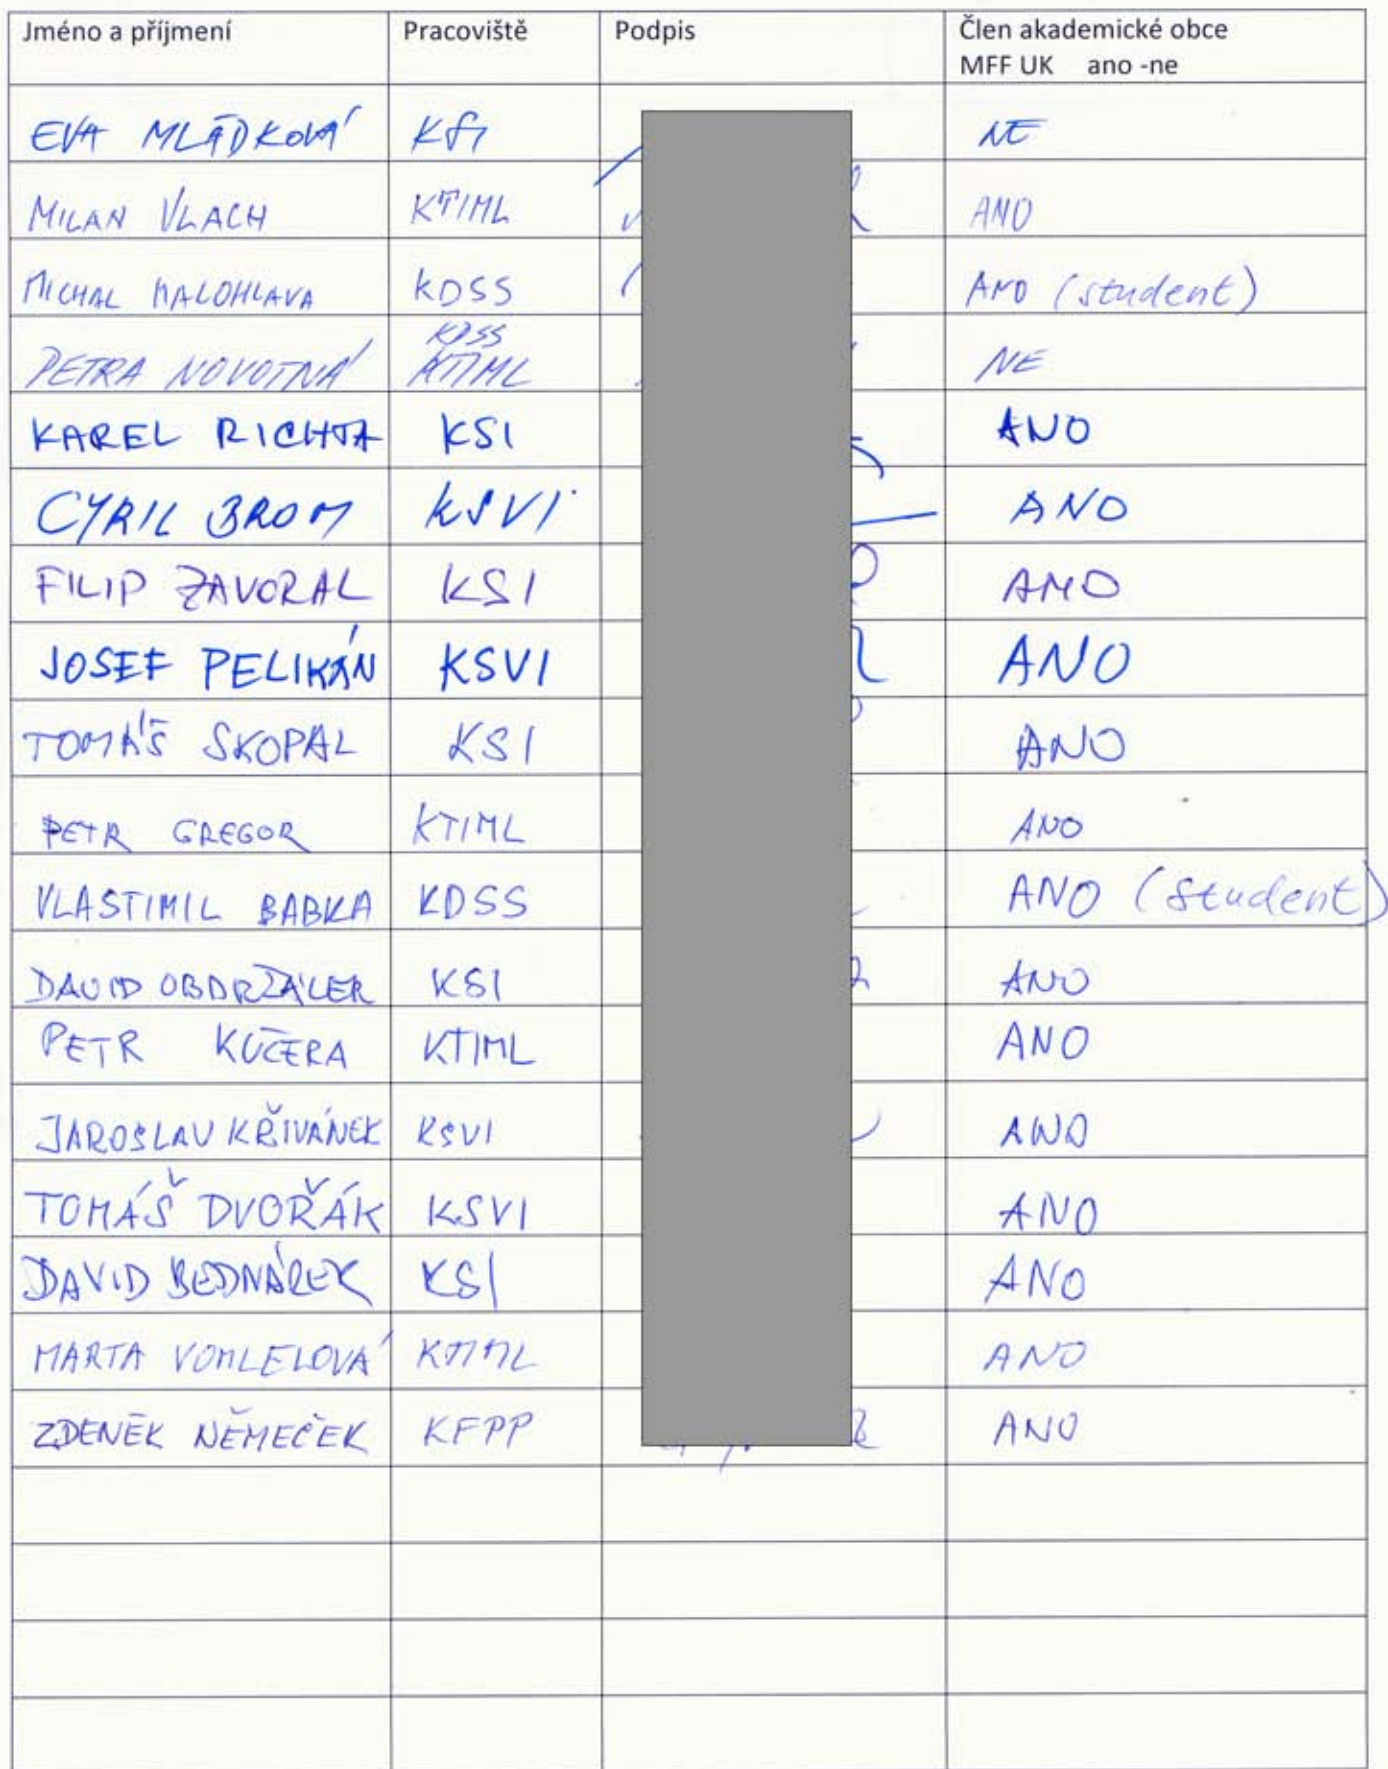 Jméno a příjmení Pracoviště Podpis Člen akademické obce
MFF UK ano -ne
EVA MLÁDKOVÁ KSI NE
MILAN VLACH KTIML ANO
MICHAL MALOHLAVA KDSS ANO (student)
KDSS
PETRA NOVOTNÁ KTIML NE
KAREL RICHTA KSI ANO
CYRIL BROM KSVI ANO
FILIP ZAVORAL KSI ANO
JOSEF PELIKÁN KSVI ANO
TOMÁŠ SKOPAL KSI ANO
PETR GREGOR KTIML ANO
VLASTIMIL BABKA KDSS ANO (student)
DAVID OBDRŽÁLEK KSI ANO
PETR KUČERA KTIML ANO
JAROSLAV KŘIVÁNEK KSVI ANO
TOMÁŠ DVOŘÁK KSVI ANO
DAVID BEDNÁREK KSI ANO
MARTA VOMLELOVÁ KTIML ANO
ZDENĚK NĚMEČEK KFPP ANO